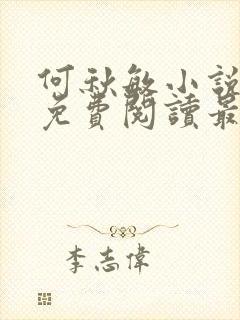 何秋敏小說
免費閱讀最
李志偉